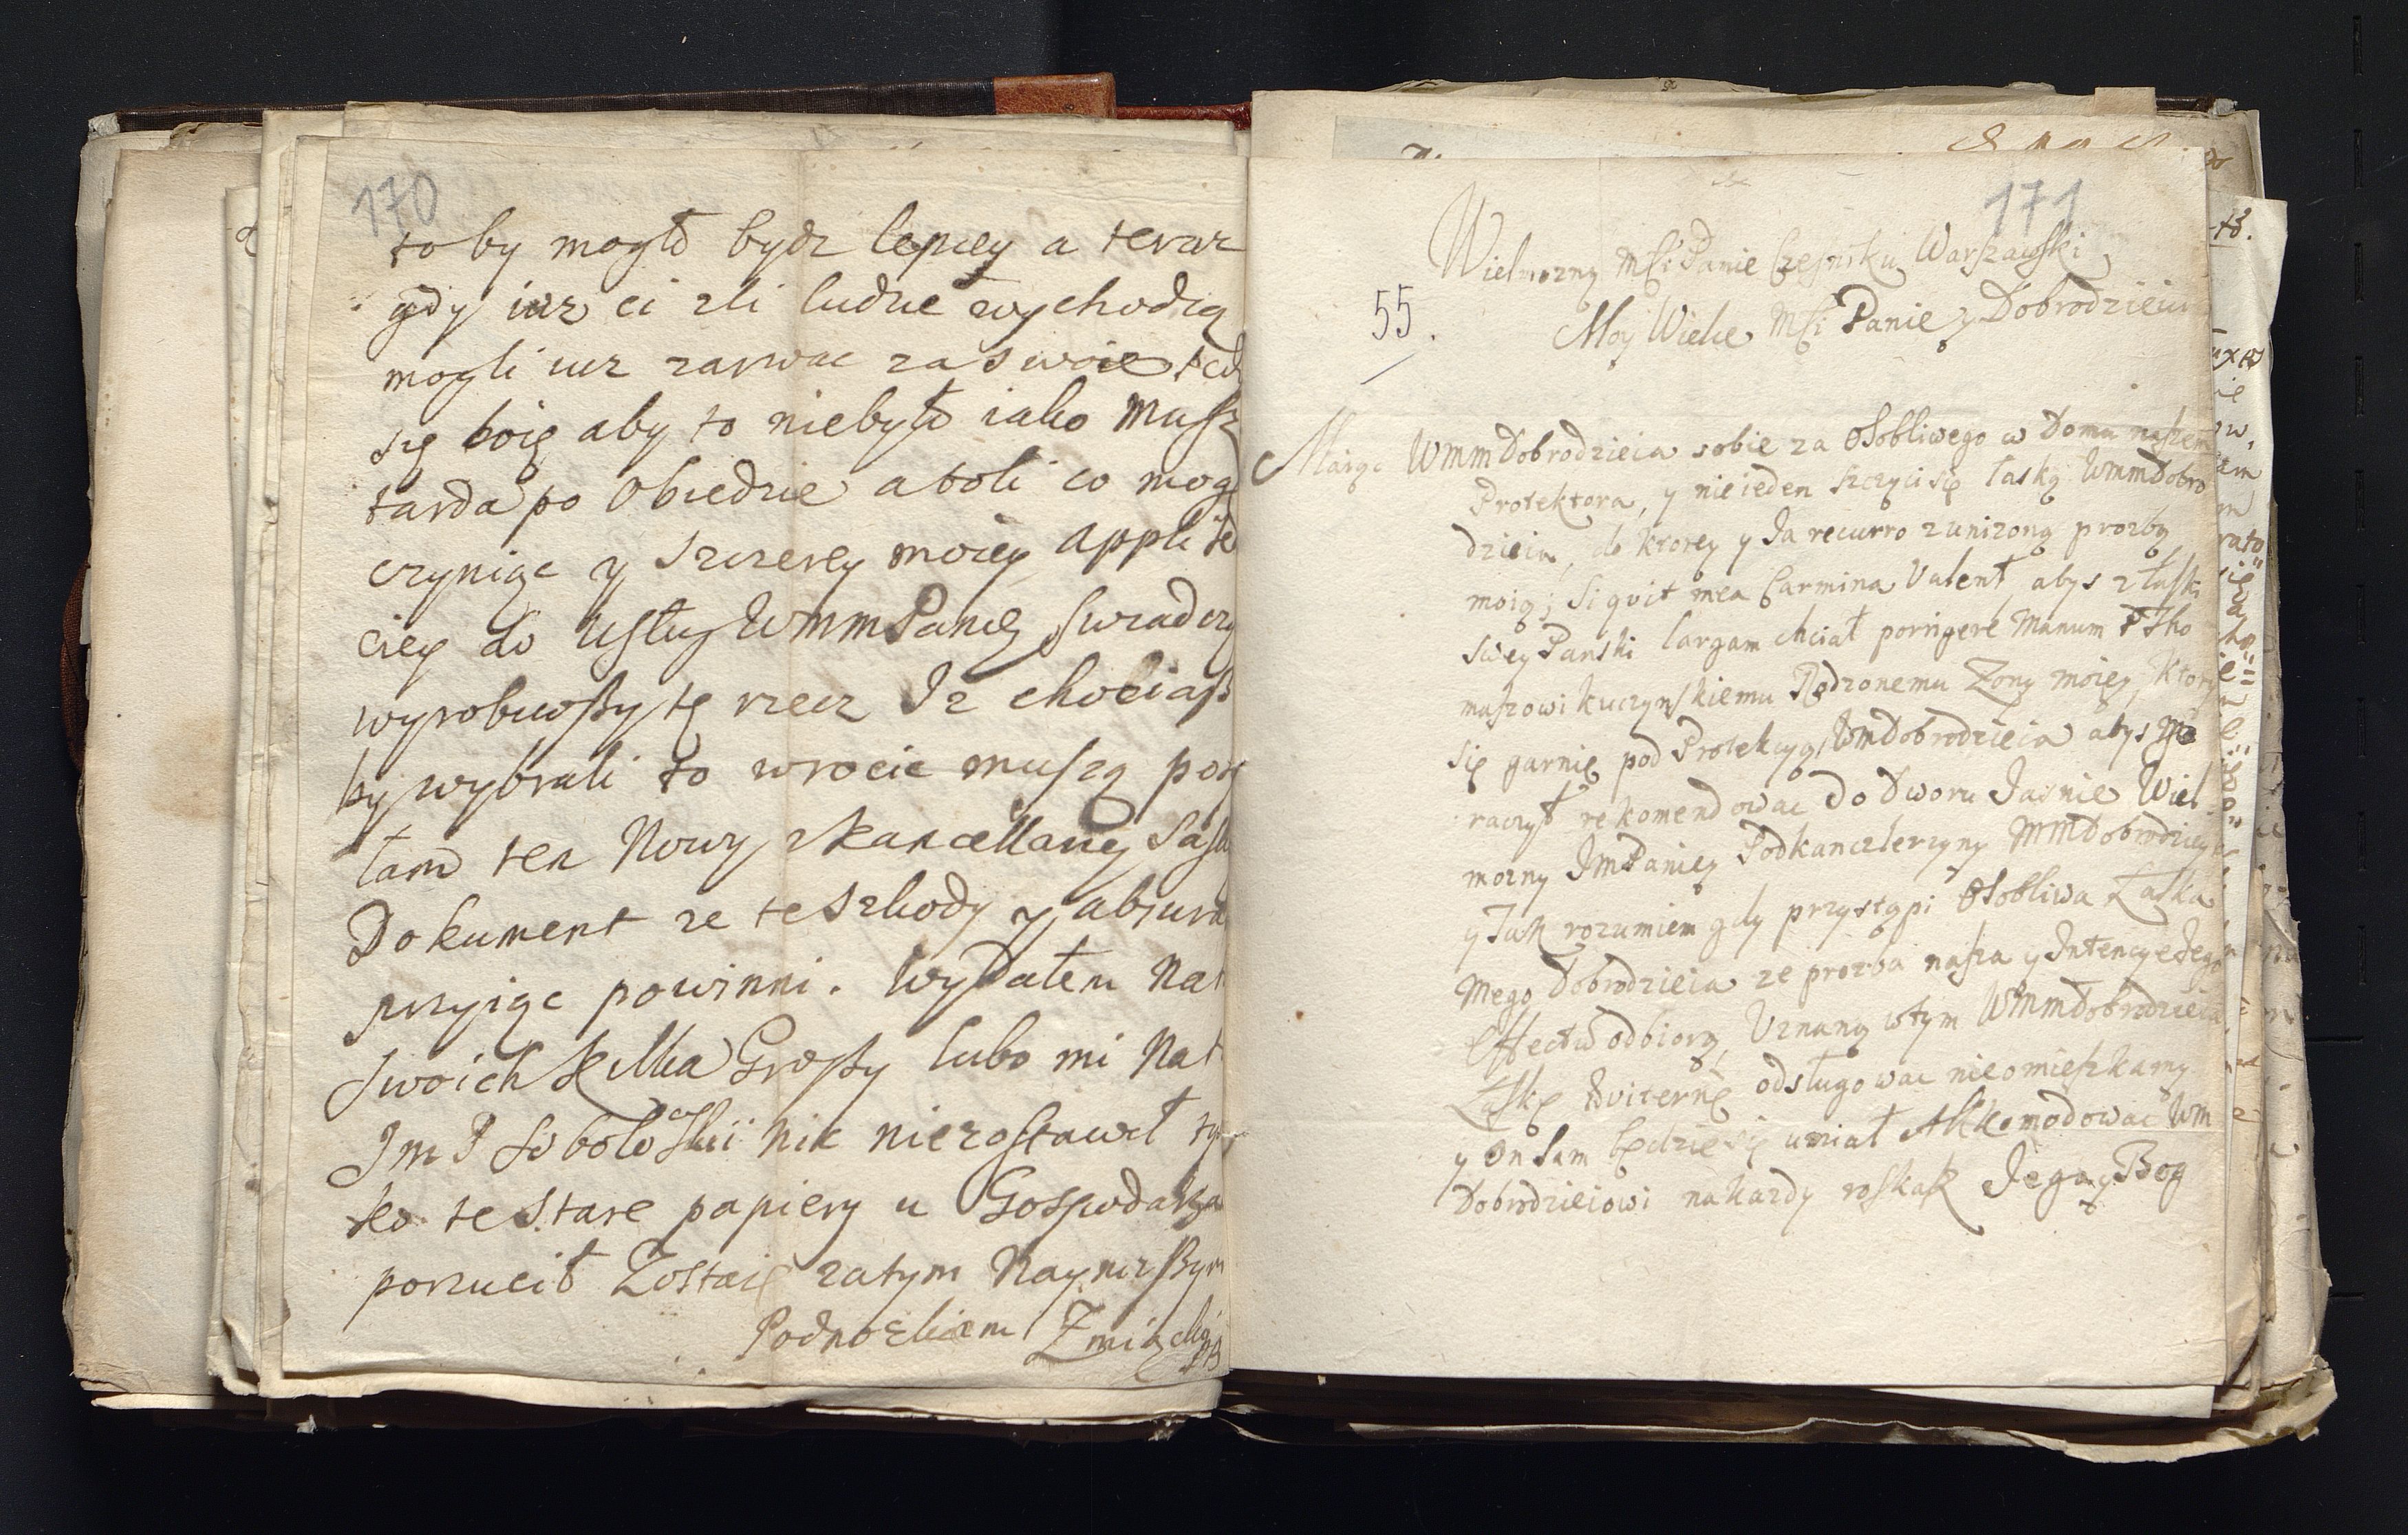 170
to by mogło bydz lepiey a teraz
gdy iuz ci zli ludzie wychodzą
mogli iuz zarwac za swoie ted
się boię aby to niebyło iako Musz
tarda po Obiedzie a toli co mog
czyniąc y szczerey moiey appli
ciey do Usług WMMPaniey swiadczy
wyrobiwszy tę rzecz Iz chociasz
by wybrali to wrocic muszą
tam ten Nowy z kancellariey
Dokument ze te szkody y absurd
przyiąc powinni. Wydałem Na
swoich kilka Groszy lubo mi Na
ImP Sobolowski nic niezostawił ty
ko te stare papiery u Gospodarza
porzucił Zostaię zatym Nayniższym
Podnozkiem
171
Wielmozny Msci Panie Czesniku Warszawski
55.
Moy Wielce Msci Panie y Dobrodzieiu
Maiąc WMMDobrodzieia sobie za Osobliwego w Domu naszem
Protektora, y nieieden szczyci się łaską WMMDobro
dzieia, do ktorey y Ja recurro z unizoną prozbą
moią; Si qvit mea Carmina Valent, abys z łaski
swey Panski largam chciał porrigere Manum P Tho
maszowi Kuczynskiemu Rodzonemu Zony moiey, Ktory
się garnie pod Protekcyą WMDobrodzieia abys go
raczył rekomendowac do Dworu Jasnie Wiel
mozny JmPaniey Podkanclerzyny MMDobrodzieyki
y Tak rozumiem gdy przystąpi Osobliwa Łaska
Mego Dobrodzieia ze prozba nasza y Intencye Jego
Effectw odbiorą, Uznaną w tym WMMDobrodzieia
Łaskę odsługowac nieomieszkamy
y On Sam będzie się umiał Akkomodowac WM
Dobrodzieiowi na kazdy roskaz Jego, y Bog